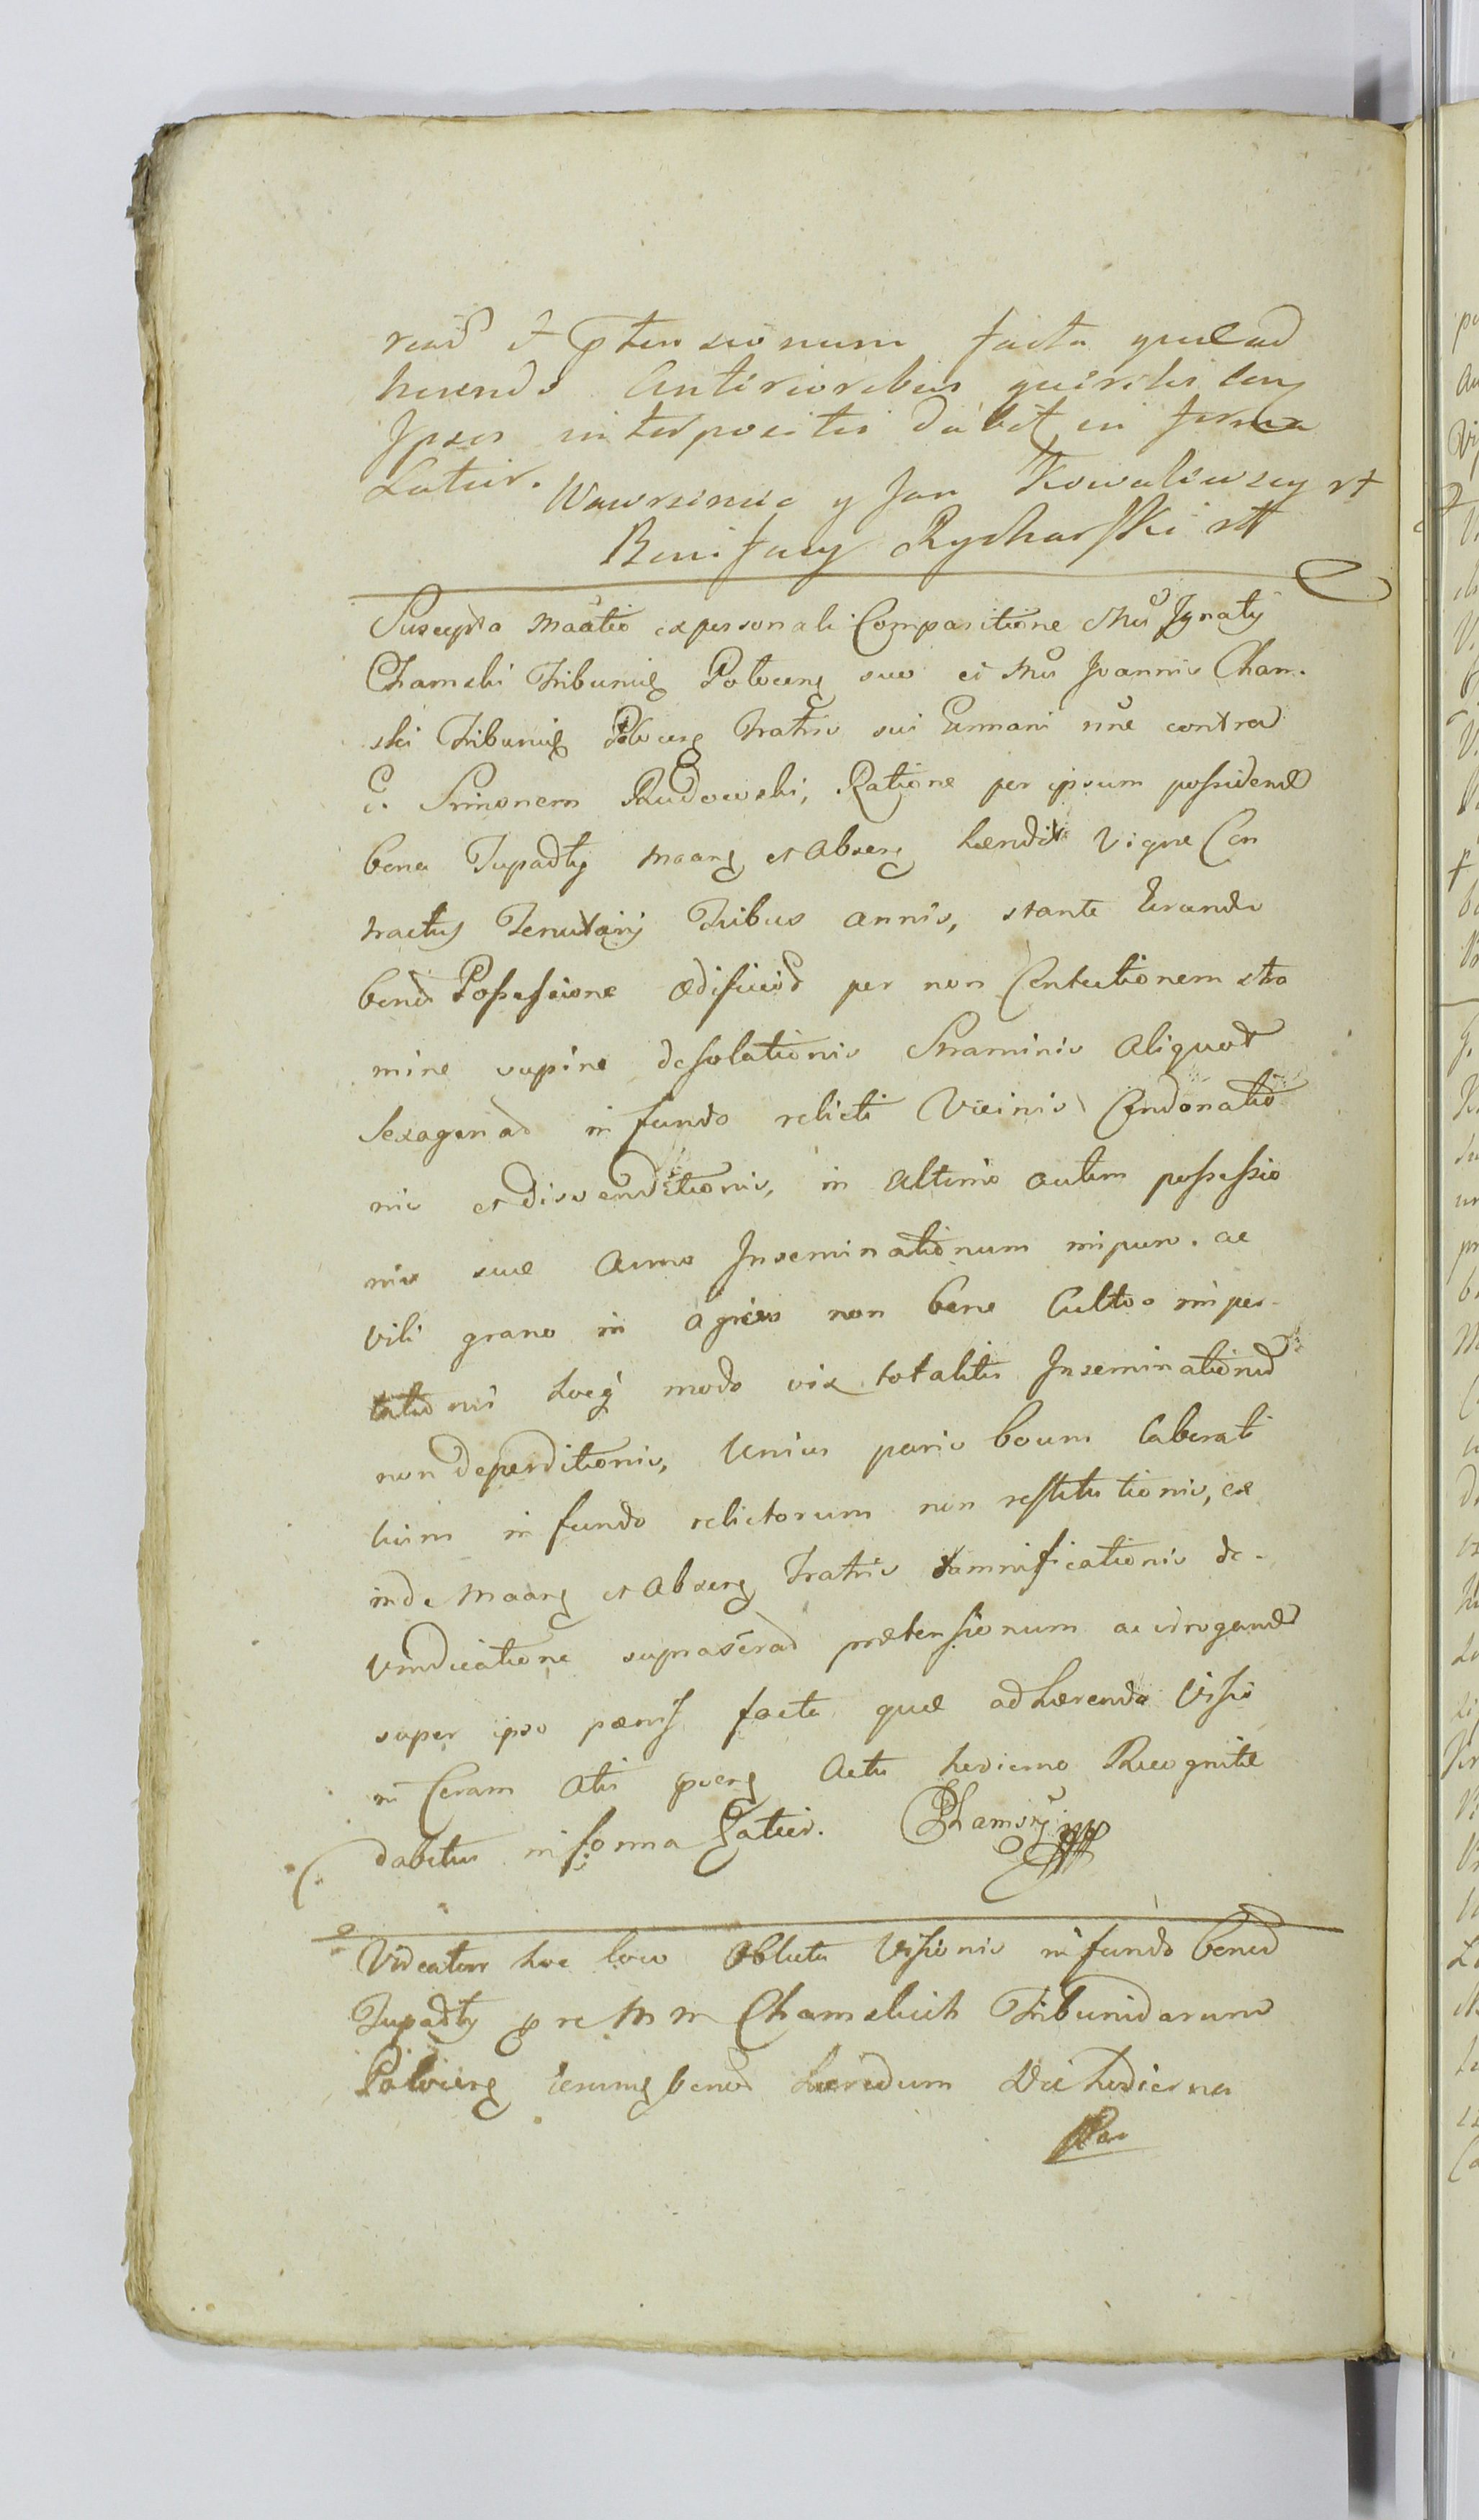 et ptensionum facta quæ ad
herendo Anterioribus
Ipsos interpositis dabit in forma
Latior.
Wawrzeniec y Jan Kowalewscy
Bonifacy Rycharski
Suscepta Maãtio ex personali Comparitione Mci Ignatij
Chamski Tribunid Plocen suo et Mci Joannis Cham.
ski Tribunid Plocen Fratris sui Germani nne contra
G. Simonem Rudowski, Ratione per ipsum possidend
bona Tupadły et Absen hærendit Vigore Con
tractus Tenutarij Tribus annis, stante Eorundo
bonor Possessione ædificior per non Contectionem stra
mine supine desolationis Straminis Aliquot
Sexagenad in fundo relicti Vicinis Condonatio
nis et disvenditionis, in ultimo autem possessio
nis suæ Anno Inseminationum ac
vili grano in agros non bene Cultos
modo vix totaliter Inseminationũ
non deperditionis, Unius paris boum Laborati
lium in fundo relictorum non restitutionis, ex
inde et Absen Fratris damnificationis de.
Vindicatione prætensionum ac irrogand
super ipso pænis facta quæ adhærendo Visio
ni Coram Actis Actu hodierno Recognitæ
dabitur in forma Latior. Chamski
Videatur hoc loco Oblata Visionis in fundo bonor
Tupadły pre MM Chamskich Tribunidarum
Plocien bonor hæredum Die hodierna